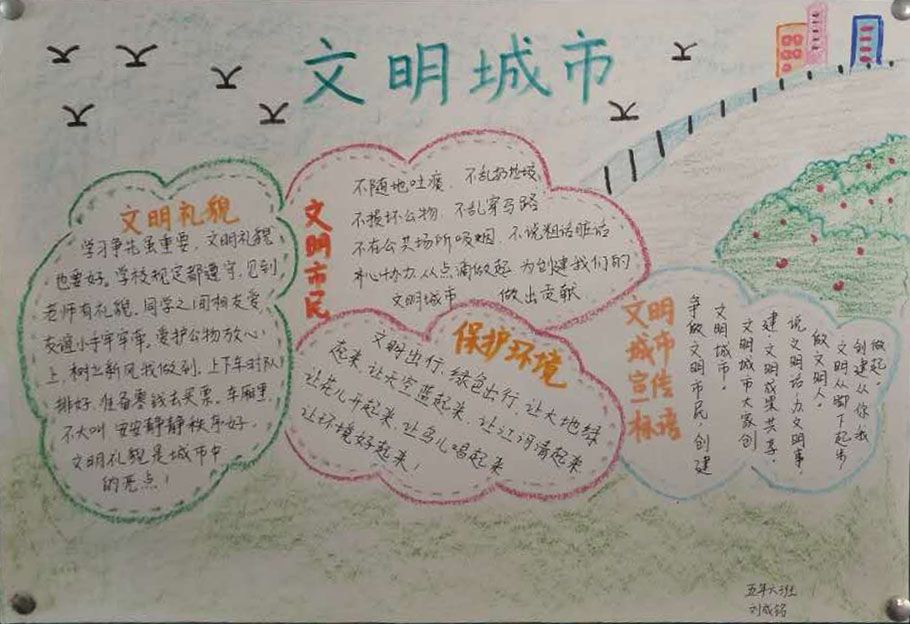 文明城市
文明礼貌
学习争先虽重要,文明礼貌
也要好。学校规定都遵守,见到
老师有礼貌。同学之间相友爱,
友谊小手牢牢牵。爱护公物放心
上,树立新风我做到。上下车时队
排好,准备零钱去买票。车厢里
不大叫 安安静静秩序好。
文明礼貌是城市中
的亮点!
文明市民
不随地吐痰、不乱扔垃圾
不损坏公物、不乱穿马路
不在公共场所吸烟、不说粗话脏话
齐心协力,从点滴做起 为创建我们的
文明城市 做出贡献
保护环境
文明出行,绿色出行,让大地绿
起来,让天空蓝起来,让江河清起来
让花儿开起来,让鸟儿唱起来
让环境好起来!
文明
城市
宣传
标语
争做文明市民,创建
文明城市!
文明城市大家创
建,文明成果共享。
说文明话,办文明事,
做文明人。
文明从脚下起步
创建从你我
做起。
五年六班
刘成铭